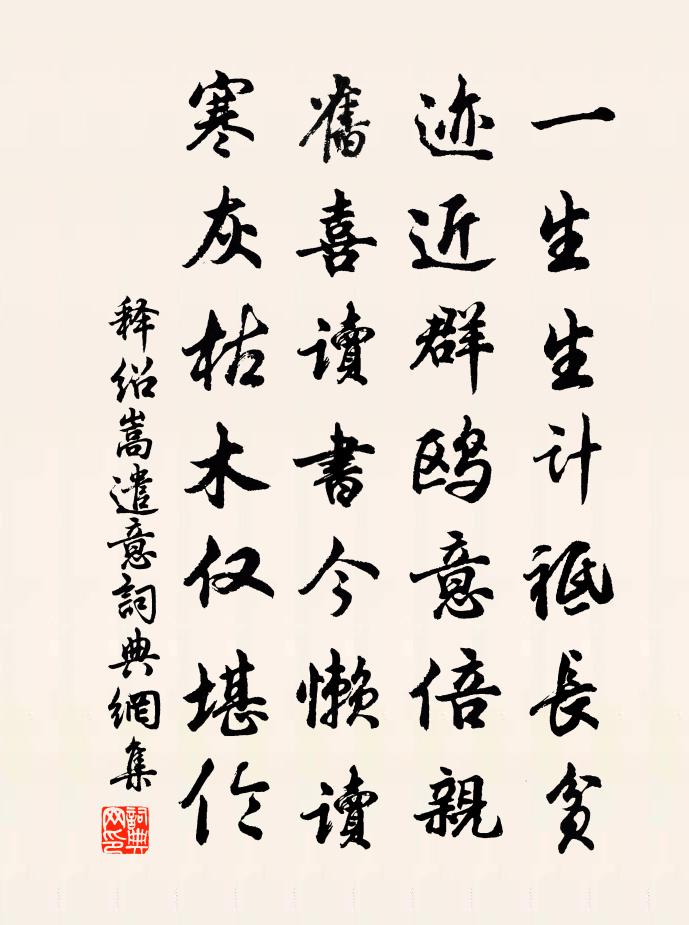 一生生计祗長貧
迹近群鸥意倍親
舊喜讀書今懒讀
寒灰枯木仅堪伦
释绍嵩遣意詞典網集
詞典网印